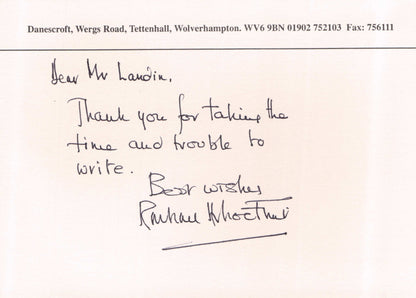 Danescroft, Wergs Road, Tettenhall, Wolverhampton. WV6 9BN 01902 752103 Fax: 756111
Dear Mr Landin,
Thank you for taking the
time and trouble to
write.
Best wishes